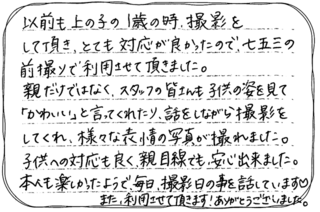 以前も上の子の1歳の時、撮影を
して頂き、とても対応が良かったので、七五三の
前撮りで利用させて頂きました。
親だけではなく、スタッフの皆さんも子供の姿を見て
「かわいい」と言ってくれたり、話をしながら撮影を
してくれ、様々な表情の写真が撮れました。
子供への対応も良く、親目線でも、安心出来ました。
本人も楽しかったようで、毎日、撮影日の事を話しています♡
また、利用させて頂きます！ありがとうございました。